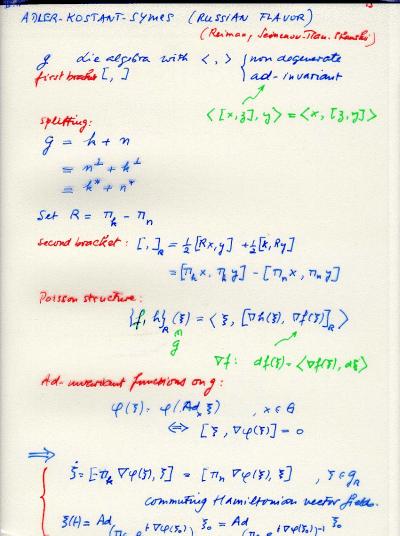 ADLER-KOSTANT-SYMES (RUSSIAN FLAVOR)
(Reiman, Semenov-Tian-Shanski)
g die algebra with < , > { non degenerate
first bracket [ , ] ad-invariant
< [x,z], y > = < x, [z,y] >
splitting:
g = k + n
= n^⊥ + k^⊥
= k* + n*
Set R = π_k - π_n
second bracket: [ , ]_R = ½[Rx,y] + ½[x,Ry]
= [π_k x, π_k y] - [π_n x, π_n y]
Poisson structure:
{f, h}_R (ξ) = < ξ, [∇h(ξ), ∇f(ξ)]_R >
g
∇f: df(ξ) = <∇f(ξ), dξ>
Ad-invariant functions on g:
φ(ξ) = φ(Ad_x ξ) , x ∈ G
⇔ [ξ, ∇φ(ξ)] = 0
⇒
ξ̇ = [-π_k ∇φ(ξ), ξ] = [π_n ∇φ(ξ), ξ] , ξ ∈ g_R
commuting Hamiltonian vector fields.
ξ(t) = Ad ξ₀ = Ad ξ₀